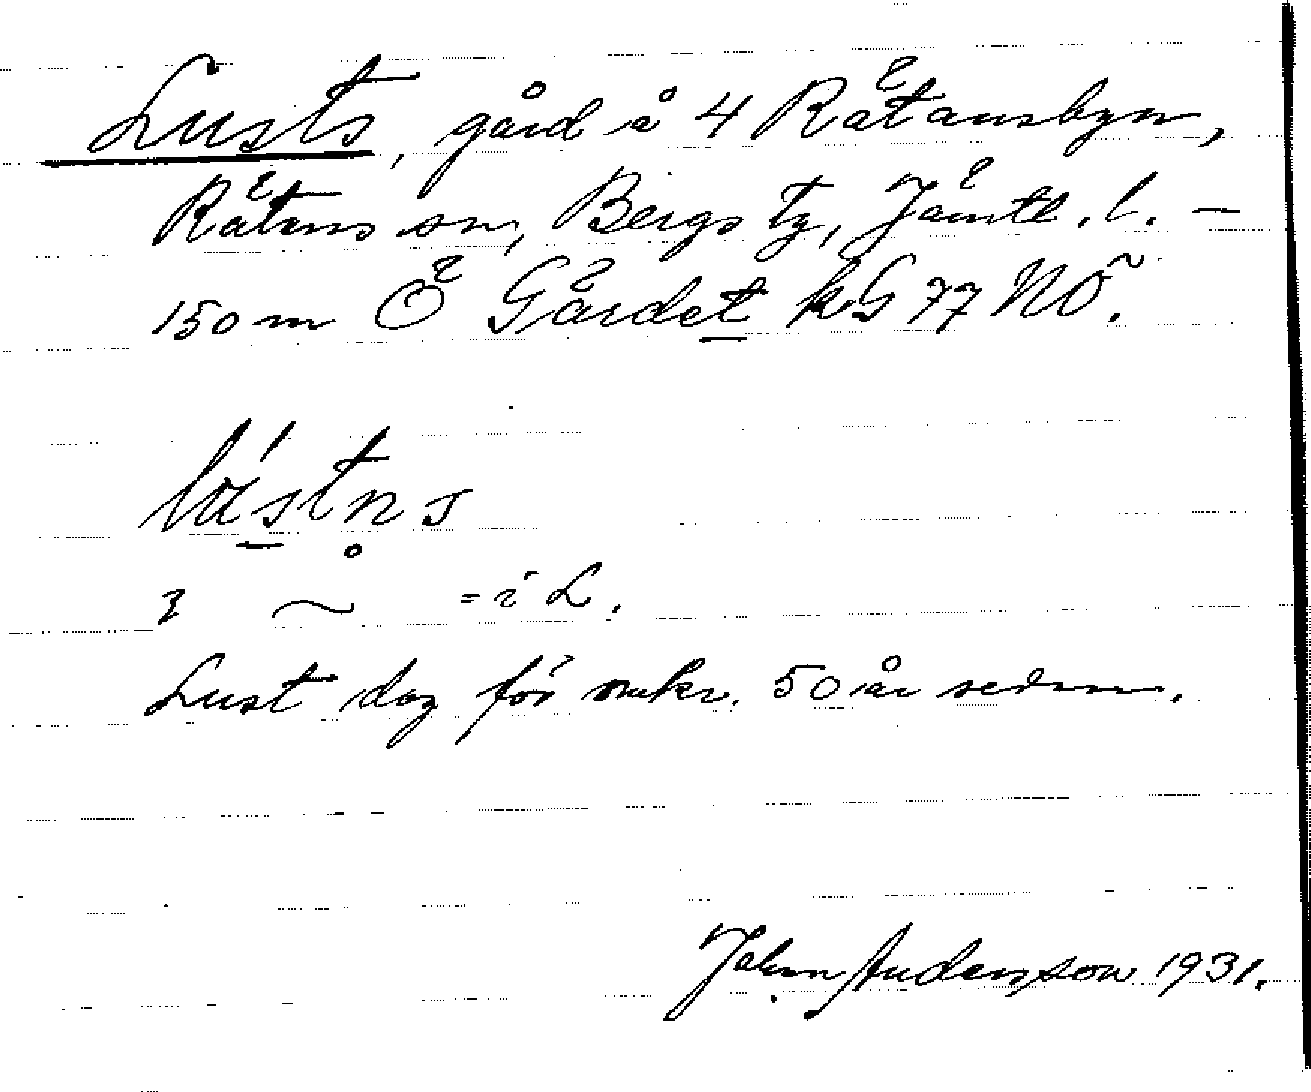 Lusts, gård å 4 Rätansbyn,
Rätans sn, Bergs tg, Jämtl. l. –
150 m Ö Gärdet kG 77 NÖ.
lástn̥
ɜ ~ = i L.
Lust dog för omkr. 50 år sedan.
John Andersson 1931.